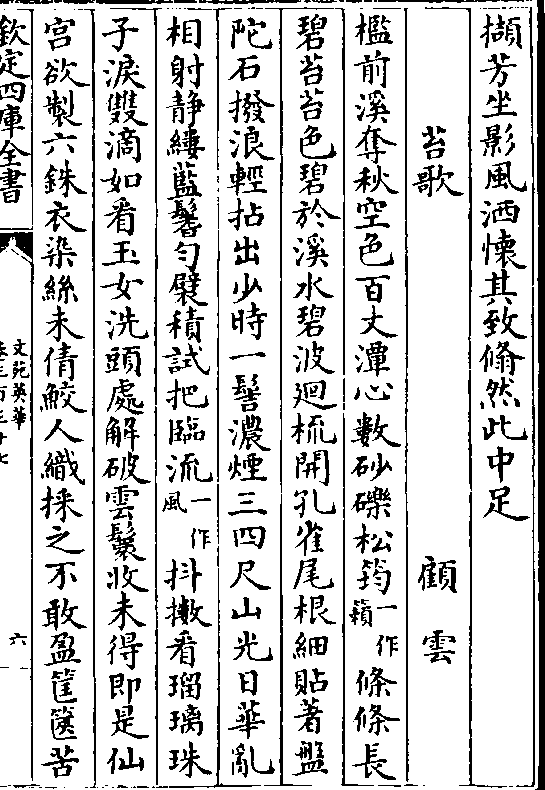 擷芳坐影風洒懷其致翛然此中足
苔歌　　　　　顧雲
檻前溪奪秋空色百丈潭心數砂礫松筠一作籟條條長
碧苔苔色碧於溪水碧波廻梳開孔雀尾根細貼著盤
陀石撥浪輕拈出少時一髻濃煙三四尺山光日華亂
相射静縷藍鬙匀襞積試把臨流一作風抖擻看瑠璃珠
子淚雙滴如看玉女洗頭處解破雲鬟收未得即是仙
宮欲製六銖衣染絲未倩鮫人織採之不敢盈筐篋苦
欽定四庫全書
文苑英華
卷三百三十七
六